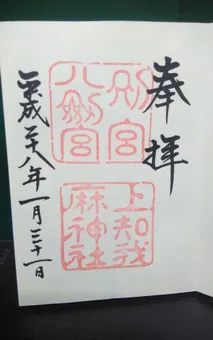 奉拝
別宮
八劔宮
上知我
麻神社
平成二十八年一月三十一日